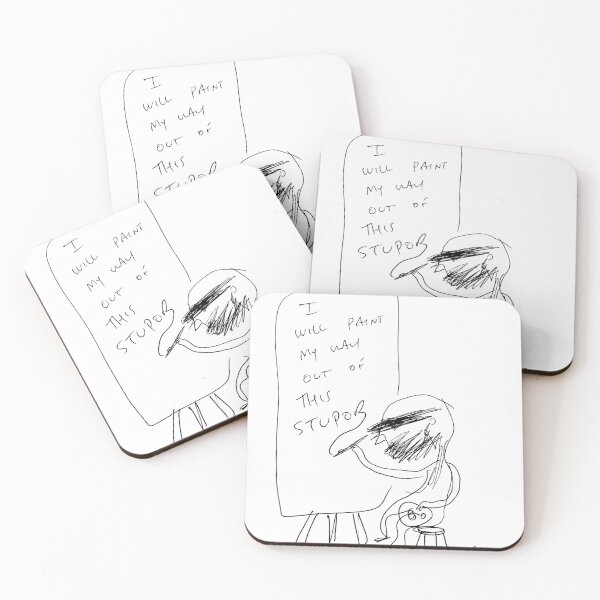 I
WILL PAINT
MY WAY
OUT OF
THIS
STUPOR
I
WILL PAINT
MY WAY
OUT OF
THIS
STUPOR
I
WILL PAINT
MY WAY
OUT OF
THIS
STUPOR
I
WILL PAINT
MY WAY
OUT OF
THIS
STUPOR